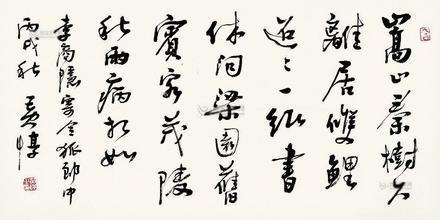 嵩云秦樹久
離居雙鯉
迢々一紙書
休問梁園舊
賓客茂陵
秋雨病相如
李商隱寄令狐郎中
丙戌秋 黄惇